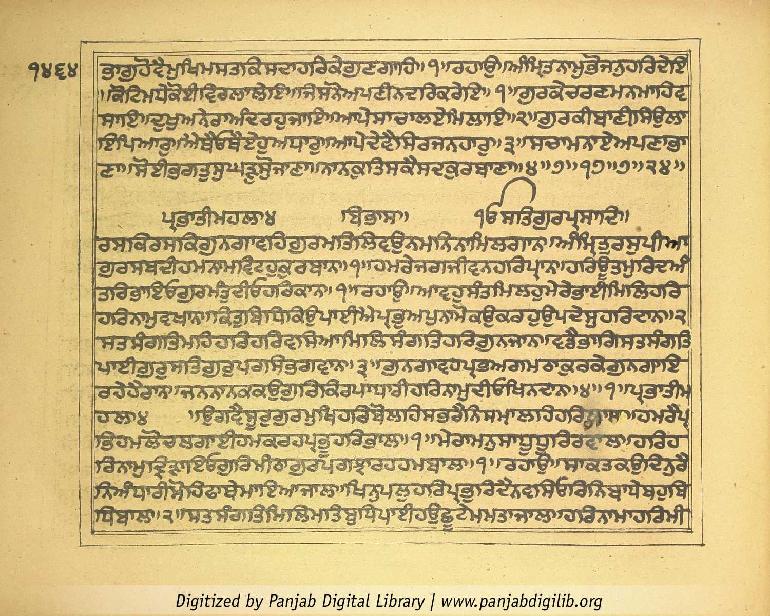 ੧੪੬੪
ਭਾਗੁਹੋਵੈਮੁਖਿਮਸਤਕਿਸਦਾਹਰਿਕੇਗੁਣਗਾਹਿ॥੧॥ਰਹਾਉ॥ਅੰਮ੍ਰਿਤਨਾਮੁਭੋਜਨੁਹਰਿਦੇਇ
॥ਕੋਟਿਮਧੇਕੋਈਵਿਰਲਾਲੇਇ॥ਜਿਸਨੋਅਪਣੀਨਦਰਿਕਰੇਇ॥੧॥ਗੁਰਕੇਚਰਣਮਨਮਾਹਿਵ
ਸਾਇ॥ਦੁਖੁਅਨੇਰਾਅੰਦਰਹੁਜਾਇ॥ਆਪੇਸਾਚਾਲਏਮਿਲਾਇ॥੨॥ਗੁਰਕੀਬਾਣੀਸਿਉਲਾ
ਇਪਿਆਰੁ॥ਐਥੈਓਥੈਏਹੁਅਧਾਰੁ॥ਆਪੇਦੇਵੈਸਿਰਜਨਹਾਰੁ॥੩॥ਸਚਾਮਨਾਏਅਪਣਾਭਾ
ਣਾ॥ਸੋਈਭਗਤੁਸੁਘੜੁਸੋਜਾਣਾ॥ਨਾਨਕੁਤਿਸਕੈਸਦਕੁਰਬਾਣਾ॥੪॥੭॥੧੭॥੭॥੨੪॥
ਪ੍ਰਭਾਤੀਮਹਲਾ੪ ਬਿਭਾਸ॥ ੴਸਤਿਗੁਰਪ੍ਰਸਾਦਿ॥
ਰਸਕਿਰਸਕਿਗੁਨਗਾਵਹਿਗੁਰਮਤਿਲਿਵਉਨਮਨਿਨਾਮਿਲਗਾਨ॥ਅੰਮ੍ਰਿਤੁਰਸੁਪੀਆ
ਗੁਰਸਬਦੀਹਮਨਾਮਵਿਟਹੁਕੁਰਬਾਨ॥੧॥ਹਮਰੇਜਗਜੀਵਨਹਰਿਪ੍ਰਾਨ॥ਹਰਿਊਤਮੁਰਿਦਅੰ
ਤਰਿਭਾਇਓਗੁਰਮੰਤੁਦੀਓਹਰਿਕਾਨ॥੧॥ਰਹਾਉ॥ਆਵਹੁਸੰਤਮਿਲਹੁਮੇਰੇਭਾਈਮਿਲਿਹਰਿ
ਹਰਿਨਾਮੁਵਖਾਨ॥ਕਿਤੁਬਿਧਿਕਿਉਪਾਈਐਪ੍ਰਭੁਅਪੁਨਾਮੋਕਉਕਰਹੁਉਪਦੇਸੁਹਰਿਦਾਨ॥੨
ਸਤਸੰਗਤਿਮਹਿਹਰਿਹਰਿਵਸਿਆਮਿਲਿਸੰਗਤਿਹਰਿਗੁਨਜਾਨ॥ਵਡੈਭਾਗਿਸਤਸੰਗਤਿ
ਪਾਈਗੁਰੁਸਤਿਗੁਰੁਪਰਸਿਭਗਵਾਨ॥੩॥ਗੁਨਗਾਵਹਪ੍ਰਭਅਗਮਠਾਕੁਰਕੇਗੁਨਗਾਇ
ਰਹੇਹੈਰਾਨ॥ਜਨਨਾਨਕਕਉਗੁਰਿਕਿਰਪਾਧਾਰੀਹਰਿਨਾਮੁਦੀਓਖਿਨਦਾਨ॥੪॥੧॥ਪ੍ਰਭਾਤੀਮ
ਹਲਾ੪ ॥ਉਗਵੈਸੂਰੁਗੁਰਮੁਖਿਹਰਿਬੋਲਹਿਸਭਰੈਨਿਸਮਾਲਹਿਹਰਿ ॥ਹਮਰੈਪ੍ਰ
ਭਿਹਮਲੋਚਲਗਾਈਹਮਕਰਹਪ੍ਰਭੂਹਰਿਭਾਲ॥੧॥ਮੇਰਾਮਨੁਸਾਧੂਧੂਰਿਰਵਾਲ॥ਹਰਿਹ
ਰਿਨਾਮੁਦ੍ਰਿੜਾਇਓਗੁਰਿਮੀਠਾਗੁਰਪਗਝਾਰਹਹਮਬਾਲ॥੧॥ਰਹਾਉ॥ਸਾਕਤਕਉਦਿਨੁਰੈ
ਨਿਅੰਧਾਰੀਮੋਹਿਫਾਥੇਮਾਇਆਜਾਲ॥ਖਿਨੁਪਲੁਹਰਿਪ੍ਰਭੁਰਿਦੈਨਵਸਿਓਰਿਨਿਬਾਧੇਬਹੁਬਿ
ਧਿਬਾਲ॥੨॥ਸਤਸੰਗਤਿਮਿਲਿਮਤਿਬੁਧਿਪਾਈਹਉਛੂਟੇਮਮਤਾਜਾਲ॥ਹਰਿਨਾਮਾਹਰਿਮੀ
Digitized by Panjab Digital Library | www.panjabdigilib.org